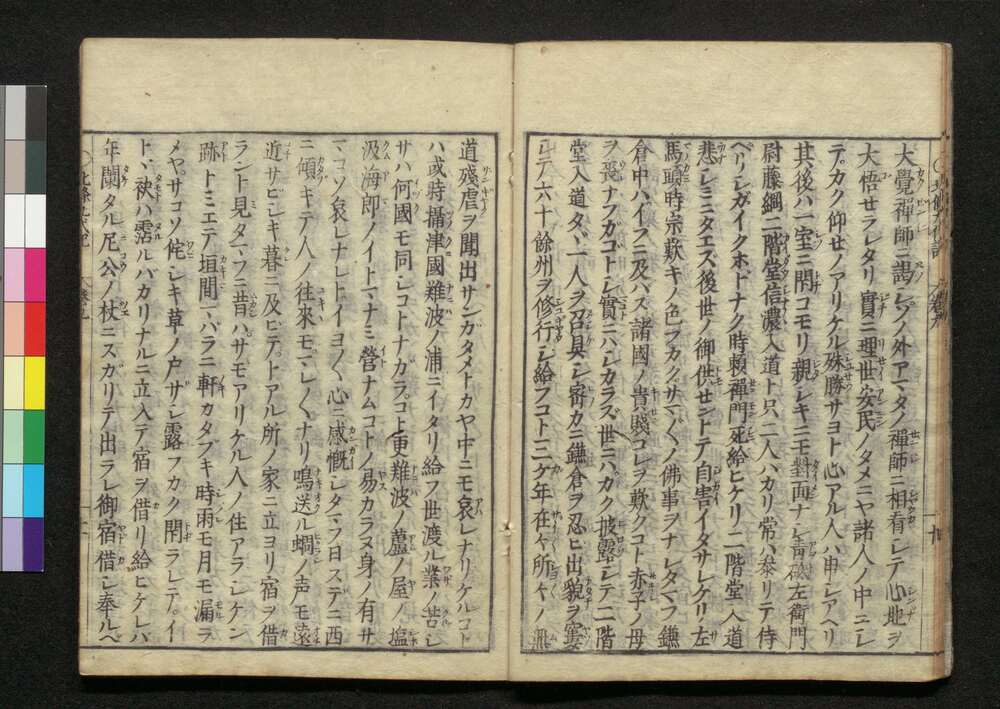 大覺禪師ニ謁シソノ外アマタノ禪師ニ相看シテ心地ヲ
大悟せラレタリ實ニ理世安民ノタメニヤ諸人ノ中ニシ
テカク仰せノアリケル殊勝サヨト心アル人ハ申シアヘリ
其後ハ一室ニ閑コモリ親シキニモ對面ナシ青砥左衛門
尉藤綱二階堂信濃入道ト只二人ハカリ常ハ泰リテ侍
ベリシガイクホドナク時頼禪門死給ヒケリ二階堂入道
悲シミニタエズ後世ノ御供せントテ自害イタサレケリ左
馬頭時宗歎キノ色フカクサマ〴〵ノ佛事ヲナシタマフ鎌
倉中ハイフニ及ハス諸國ノ貴賤コレヲ歎クコト赤子ノ母
ヲ喪ナフガコトシ實ニハシカラズ世ニハカク披露シテ二階
堂入道タヾ一人ヲ召具シ密カニ鎌倉ヲ忍ヒ出貌ヲ窶
シテ六十餘州ヲ修行シ給フコト三ケ年在々所々ノ無
道殘虐ヲ聞出サンガタメトカヤ中ニモ哀レナリケルコト
ハ或時攝津國難波ノ浦ニイタリ給フ世渡ル業ノ苦シ
サハ何國モ同シコトナガラコト更難波ノ蘆ノ屋ノ塩
汲海郎ノイトマナミ營ナムコトノ易カラヌ身ノ有サ
マコソ哀レナレトイヨ〳〵心ニ感慨シタマフ日ステニ西
ニ傾キテ人ノ往來モマレ〳〵ナリ鳴送ル蜩ノ声モ遠
近サビシキ暮ニ及ヒテトアル所ノ家ニ立ヨリ宿ヲ借
ラント見タマフニ昔ハサモアリケル人ノ住アラシケン
跡トミエテ垣間バラニ軒カタブキ時雨モ月モ漏ラ
メヤサコソ侘シキ草ノ戸ザシ露フカク閉ラレテイ
トヽ袂ハ霑ルバカリナルニ立入テ宿ヲ借リ給ヒケレバ
年闌タル尼公ノ杖ニスガリテ出ラレ御宿借シ奉ルベ